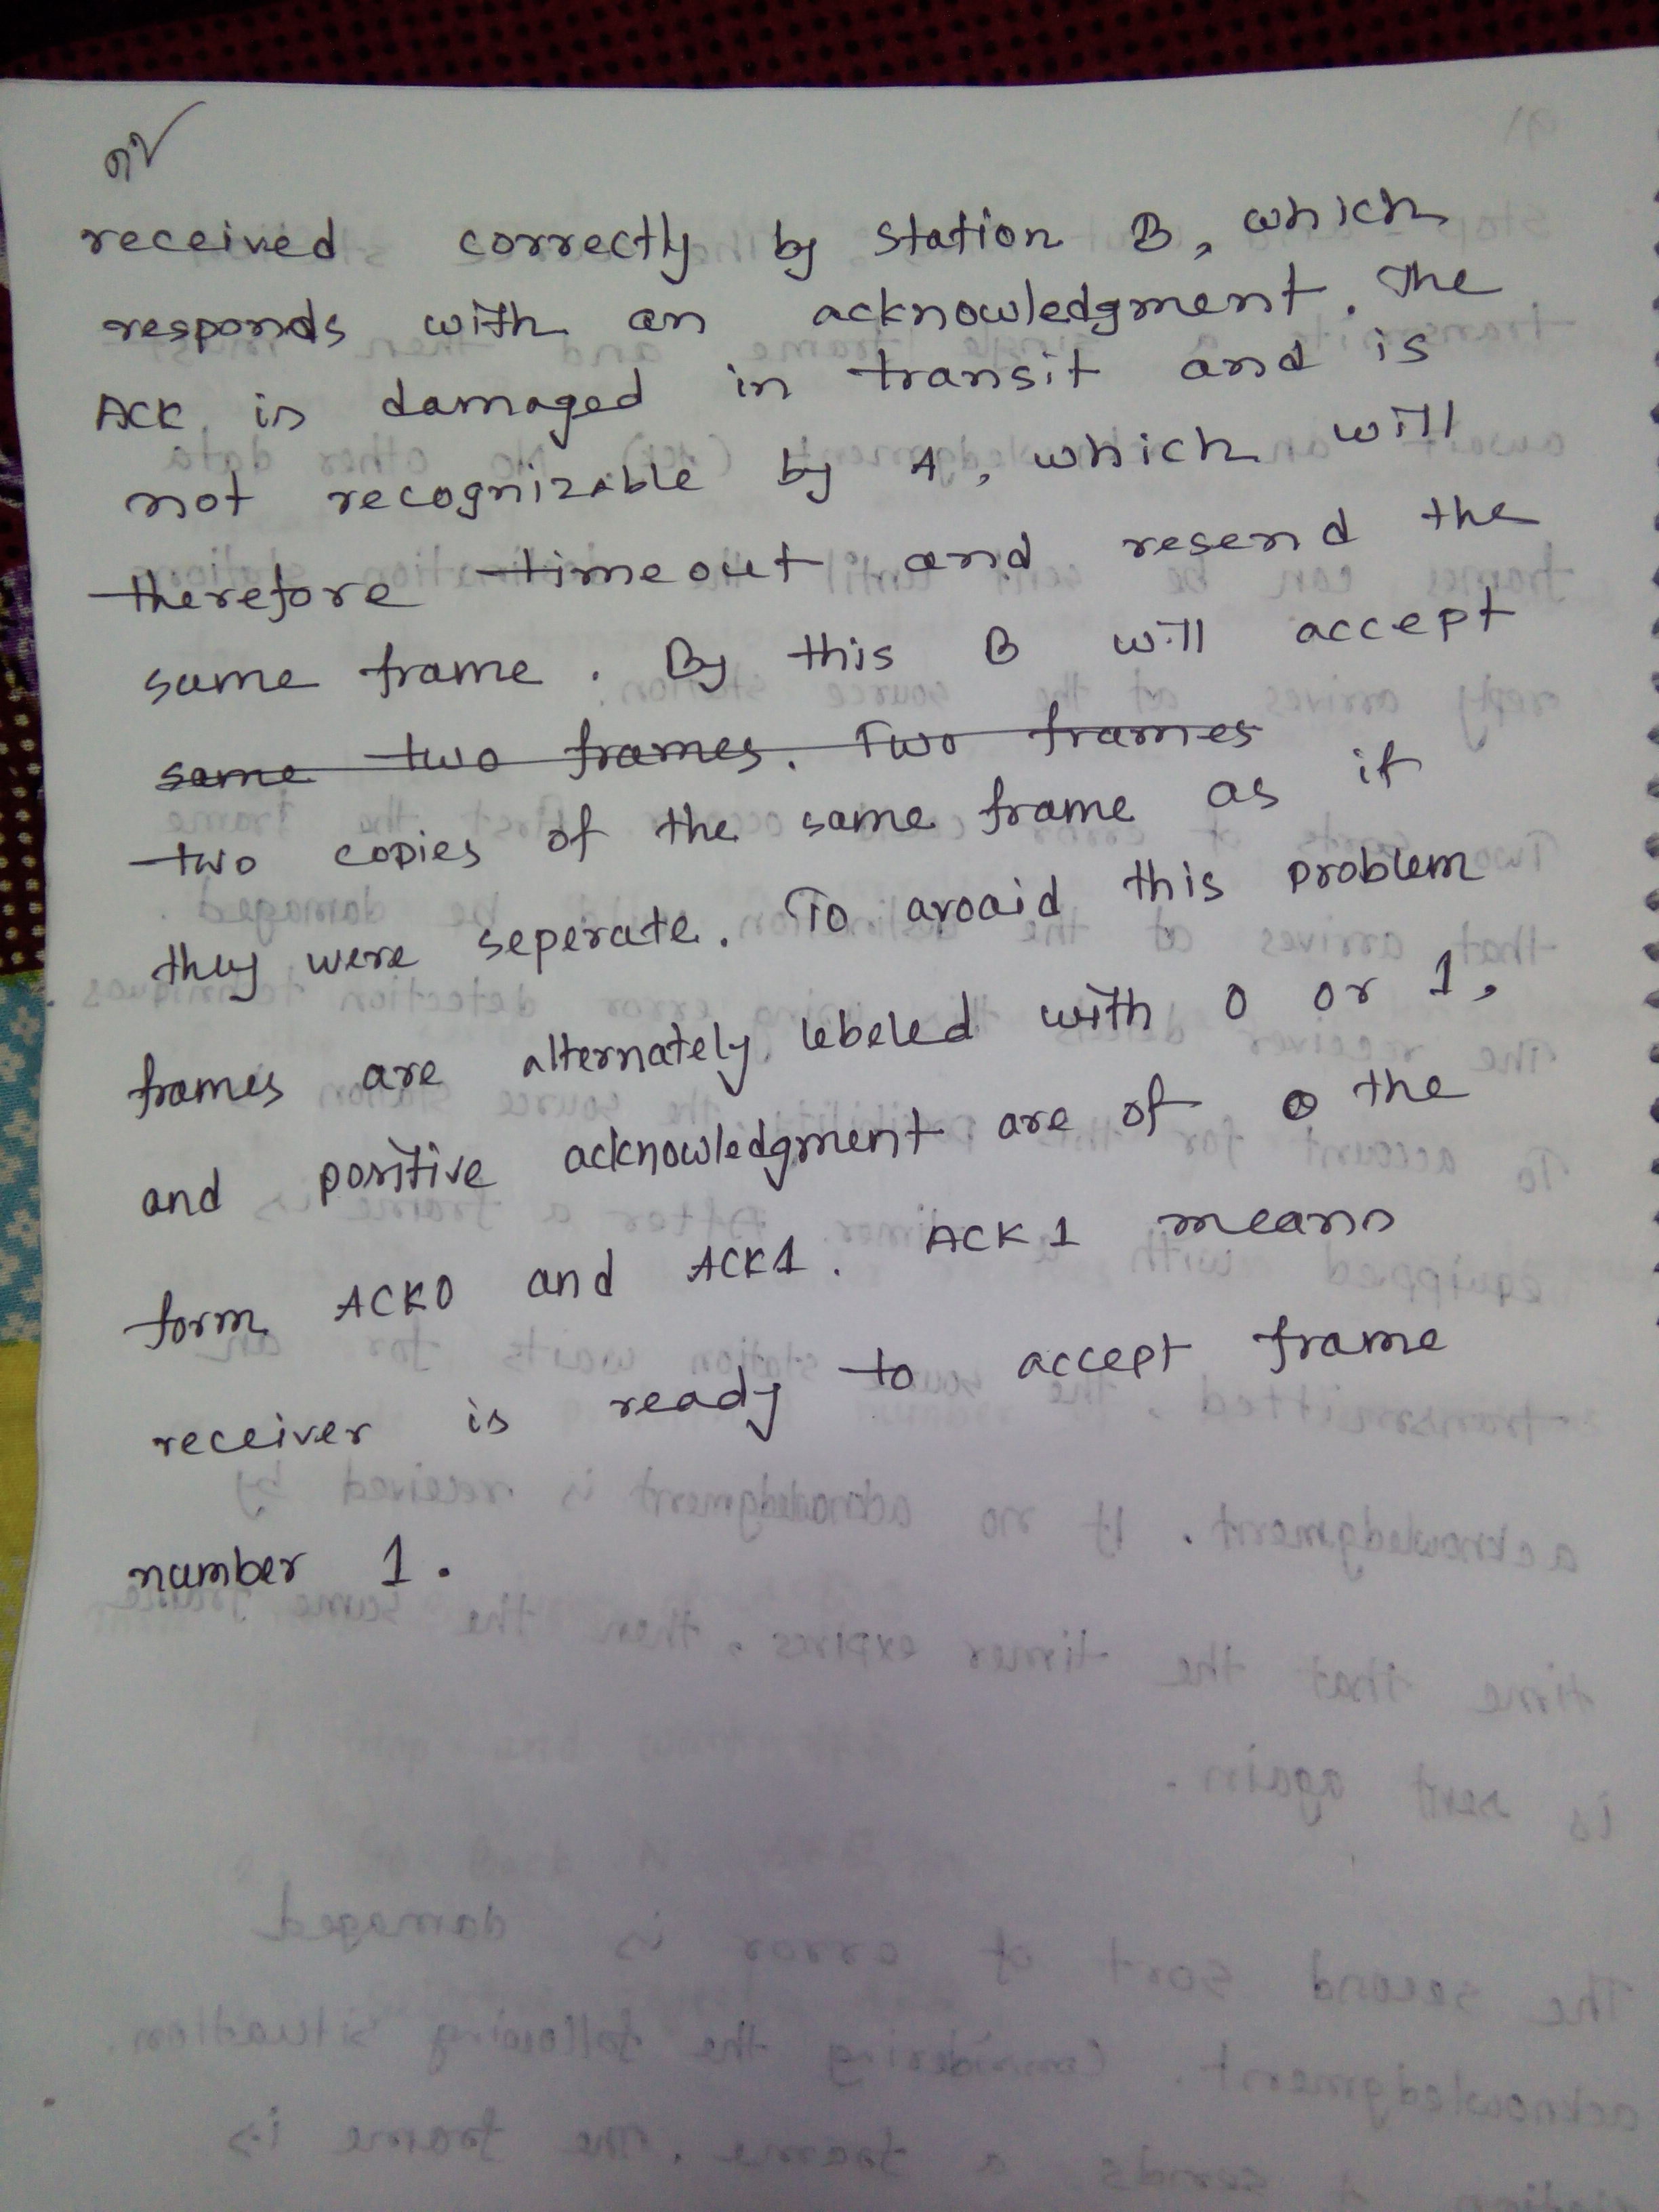 received correctly by station B, which
responds with an acknowledgment. The
ACK is damaged in transit and is
not recognizable by A, which will
therefore timeout and resend the
same frame. By this B will accept
same two frames. Two frames
two copies of the same frame as if
they were seperate. To avoaid this problem
frames are alternately lebeled with 0 or 1,
and positive acknowledgment are of the
form ACK0 and ACK1. ACK1 means
receiver is ready to accept frame
number 1.